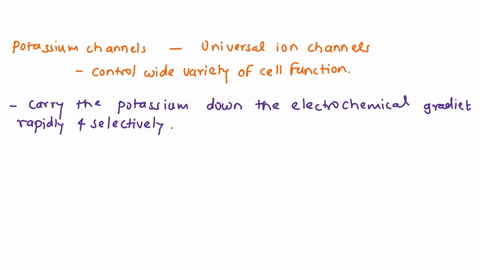 Potassium channels — Universal ion channels
- control wide variety of cell function.
- carry the potassium down the electrochemical gradiet
rapidly & selectively.